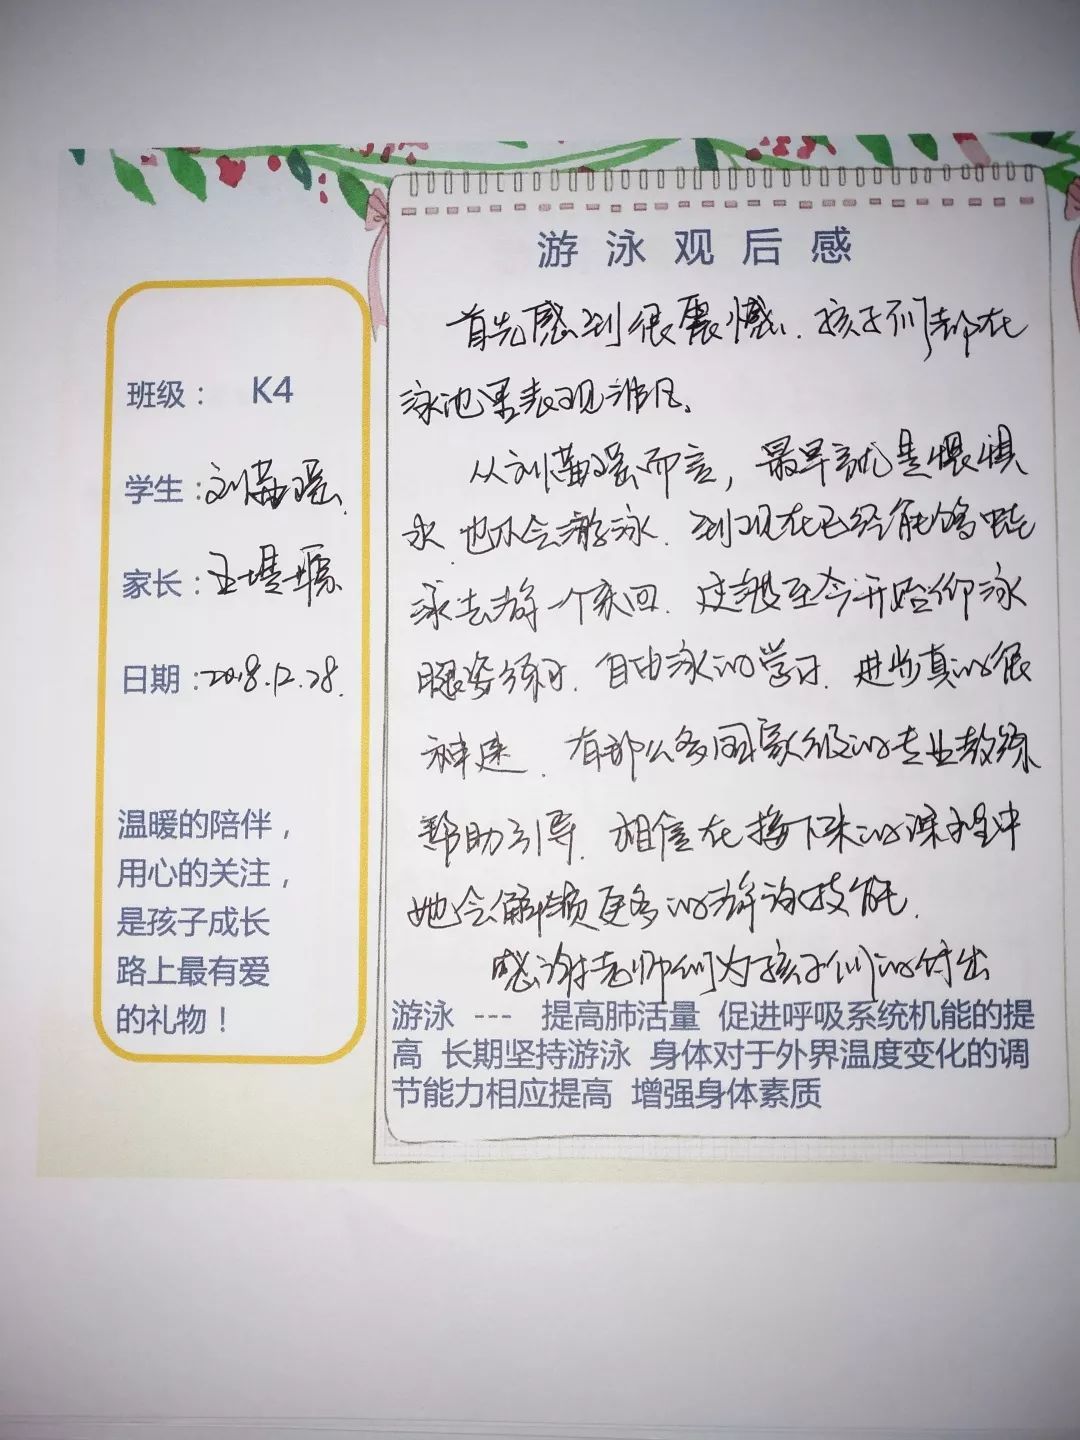 游泳观后感
班级： K4
学生：刘
家长：王
日期：2018.12.28.
温暖的陪伴，
用心的关注，
是孩子成长
路上最有爱
的礼物！
首先感到很震憾，孩子们都在
泳池里表现非凡。
从刘而言，最早就是惧
水，也不会游泳，到现在已经能够蛙
泳去游一个来回，过渡至今开始仰泳
腿姿练习，自由泳的学习，进步真的很
神速，有那么多国家级的专业教练
帮助引导，相信在接下来的课程中
她会解锁更多的游泳技能。
感谢老师们为孩子们的付出
游泳 --- 提高肺活量 促进呼吸系统机能的提
高 长期坚持游泳 身体对于外界温度变化的调
节能力相应提高 增强身体素质